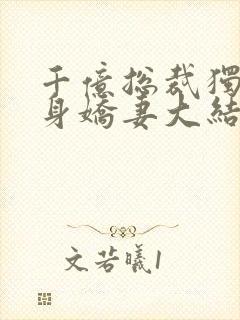 千億總裁獨
身嬌妻大結
文若曦1